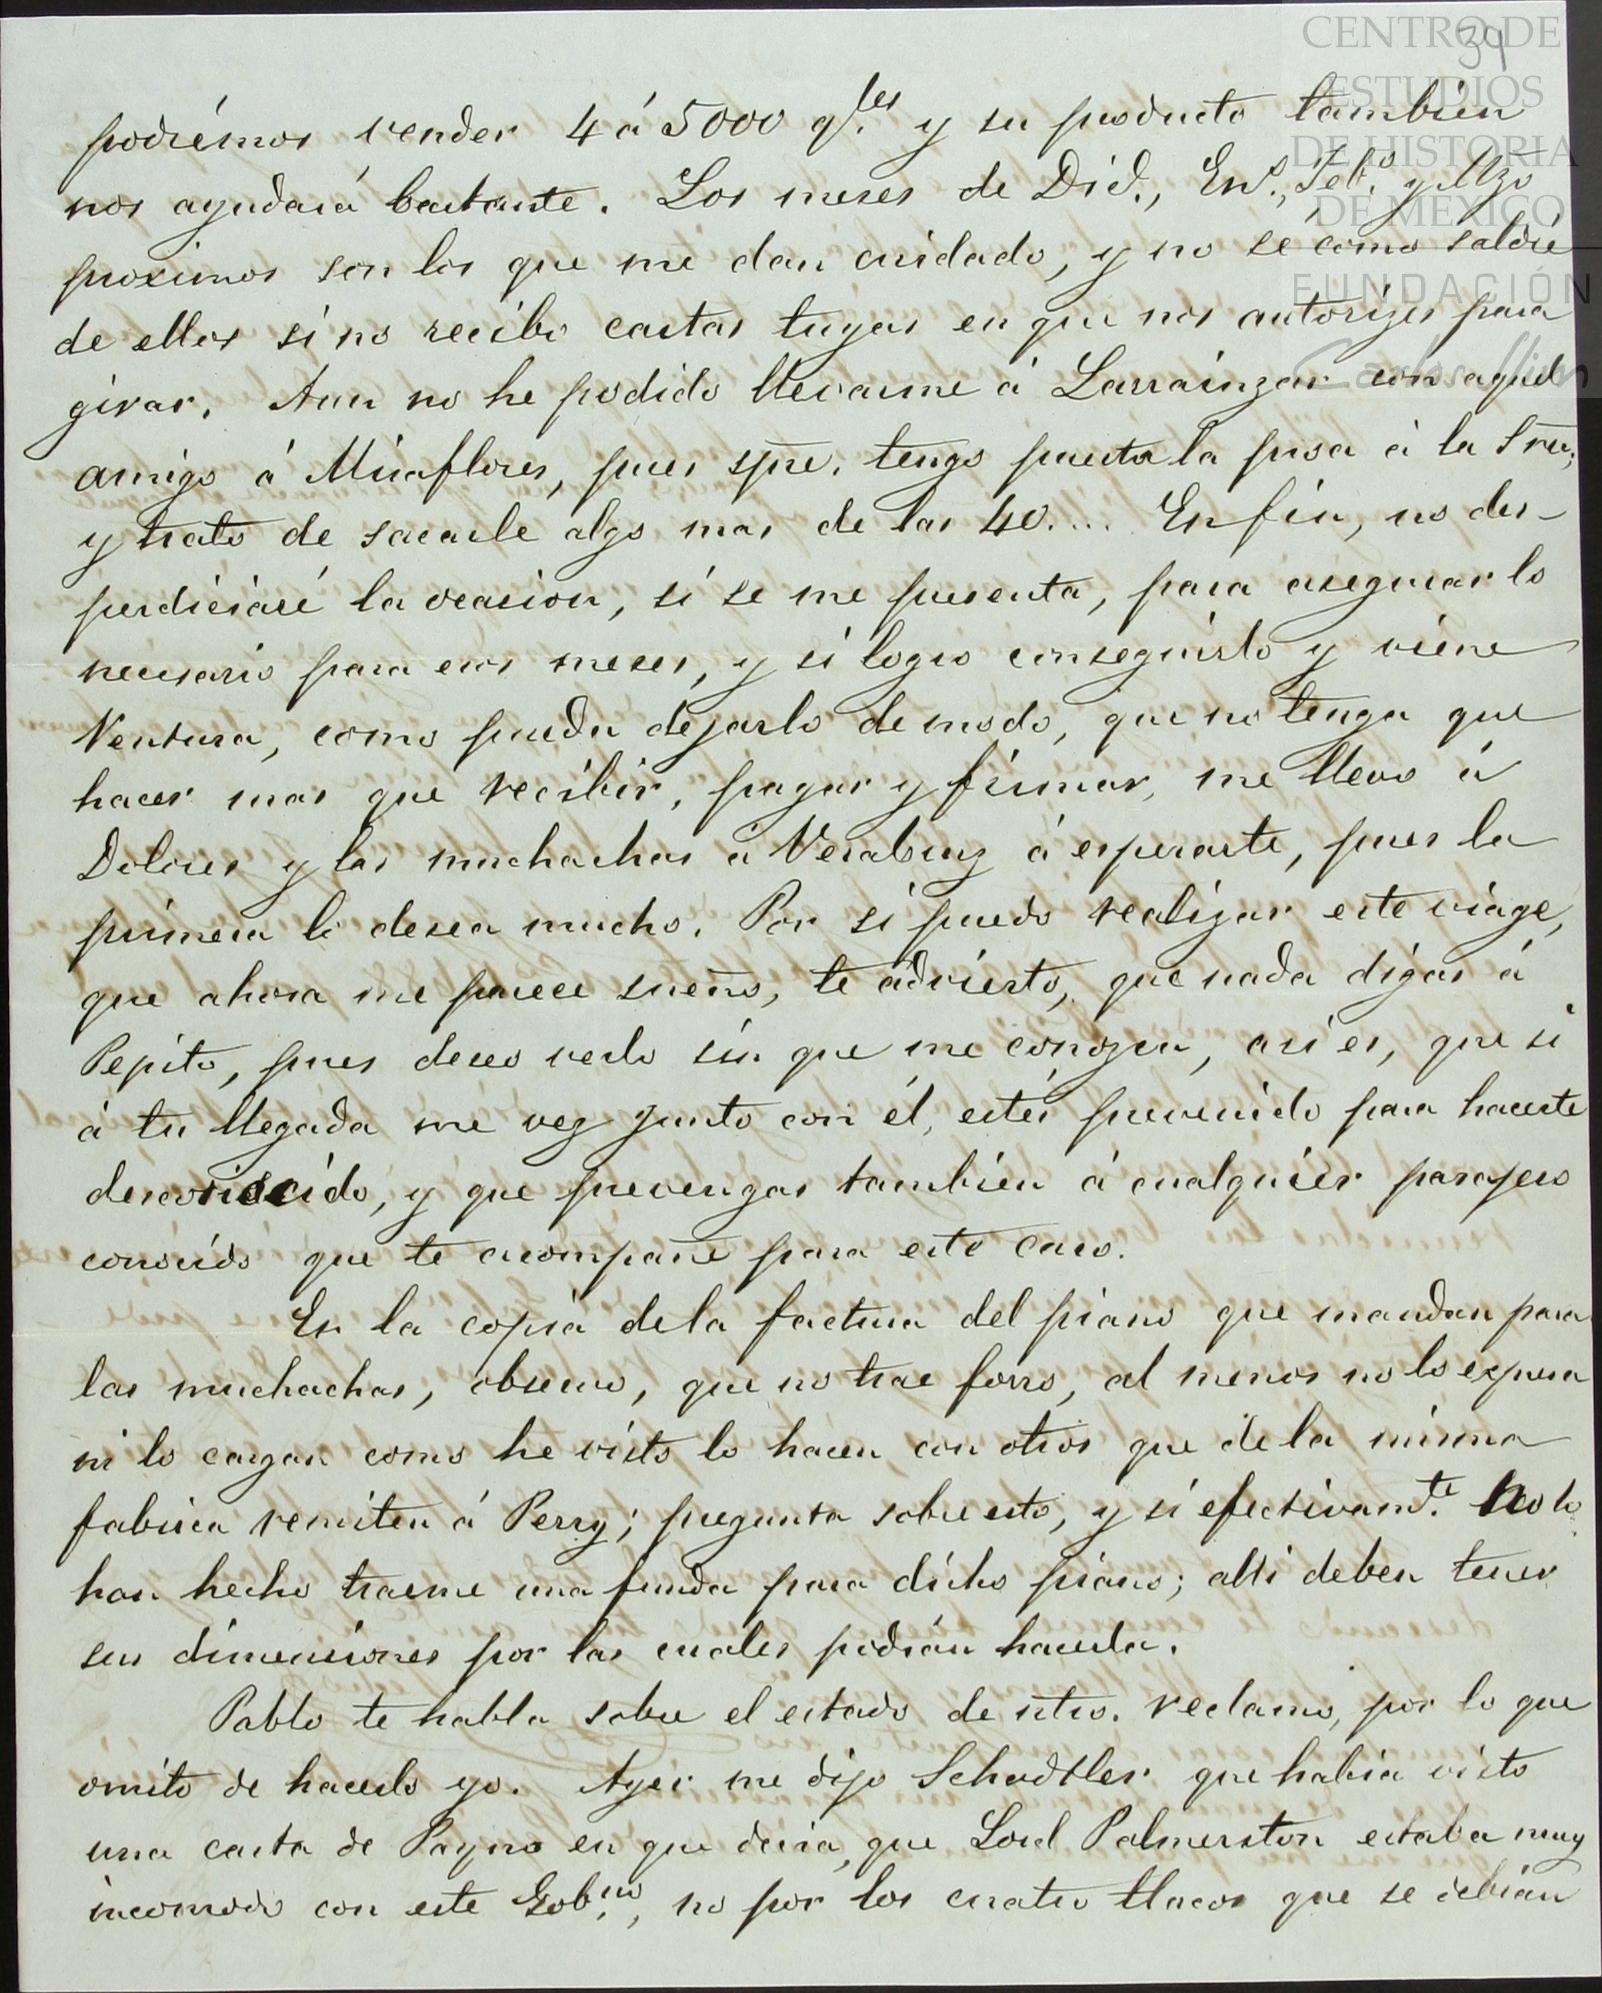 34
CENTRO DE
ESTUDIOS
DE HISTORIA
DE MEXICO
FUNDACIÓN
Carlos Slim
podrémos vender 4 á 5000 q.les y su producto tambien
nos ayudará bastante. Los meses de Dic.e, En.o, Feb.o y Mzo
proximos son los que me dan cuidado, y no se como saldré
de ellos si no recibo cartas tuyas en que nos autorizes para
girar. Aun no he podido llevarme á Larrainzar con aquel
amigo á Miraflores, pues spre. tengo puesta la prosa á la Sria,
y trato de sacarle algo mas de las 40.... En fin, no des-
perdiciaré la ocasion, si se me presenta, para asegurar lo
necesario para esos meses, y si logro conseguirlo y viene
Ventura, como pueda dejarlo de modo, que no tenga que
hacer mas que recibir, pagar y firmar, me llevo á
Dolores y las muchachas á Verabruz á esperarte, pues la
primera lo desea mucho. Por si puedo realizar este viage,
que ahora me parece sueño, te advierto, que nada digas á
Pepito, pues deseo verlo sin que me conozca, asi es, que si
á tu llegada me vez junto con él, estés prevenido para hacerte
desconocido, y que prevengas tambien á cualquier pasajero
conocido que te acompañe para este caso.
En la copia de la factura del piano que mandan para
las muchachas, observo, que no trae forro, al menos no lo expresa
ni lo cargan como he visto lo hacen con otros que de la misma
fabrica remiten á Perry; pregunta sobre esto, y si efectivam.te no lo
han hecho traeme una funda para dicho piano; alli deben tener
sus dimensiones por las cuales podrán hacerla.
Pablo te habla sobre el estado de ntro. reclamo, por lo que
omito de hacerlo yo. Ayer me dijo Schudtler que habia visto
una carta de Payno en que decia, que Lord Palmerston estaba muy
incomodo con este Gob.no, no por los cuatro tlacos que se debian